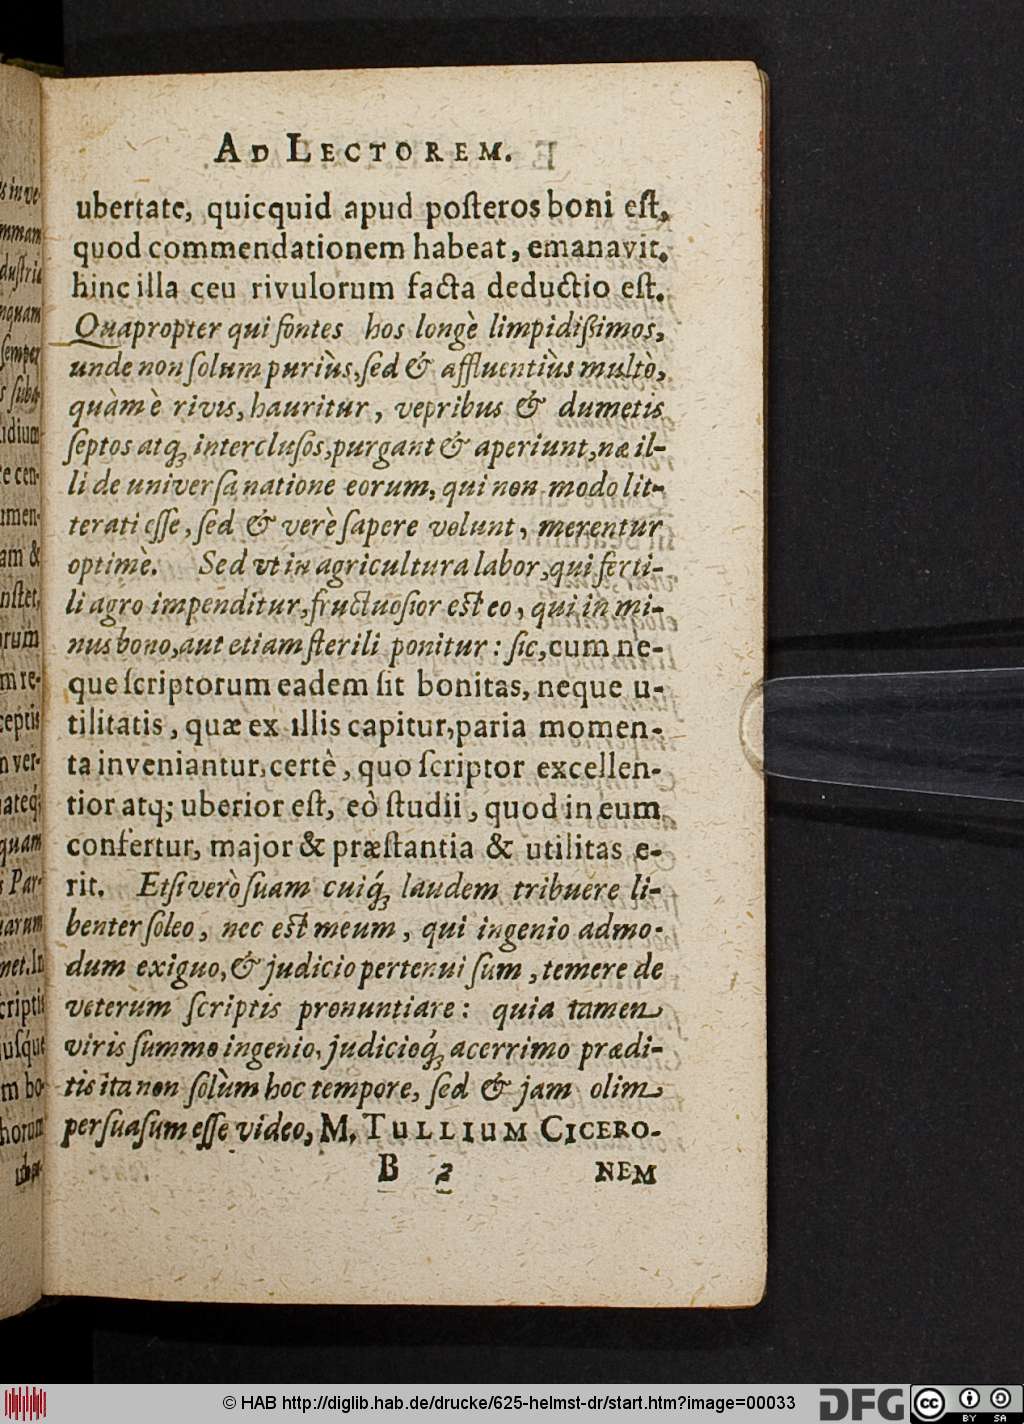 AD LECTOREM.
ubertate, quicquid apud poſteros boni eſt,
quod commendationem habeat, emanavit.
hinc illa ceu rivulorum facta deductio eſt.
Quapropter qui fontes hos longè limpidißimos,
unde non ſolum puriùs, ſed & affluentiùs multò,
quàm è rivis, hauritur, vepribus & dumetis
ſeptos atq́; intercluſos, purgant & aperiunt, næ il-
li de univerſa natione eorum, qui non modo lit-
terati eſſe, ſed & verè ſapere volunt, merentur
optimè. Sed vt in agricultura labor, qui ferti-
li agro impenditur, fructuoſior eſt eo, qui in mi-
nus bono, aut etiam ſterili ponitur: ſic, cum ne-
que ſcriptorum eadem ſit bonitas, neque u-
tilitatis, quæ ex illis capitur, paria momen-
ta inveniantur, certè, quo ſcriptor excellen-
tior atq; uberior eſt, eò ſtudii, quod in eum
confertur, major & præſtantia & utilitas e-
rit. Etſi verò ſuam cuiq́; laudem tribuere li-
benter ſoleo, nec eſt meum, qui ingenio admo-
dum exiguo, & judicio pertenui ſum, temere de
veterum ſcriptis pronuntiare: quia tamen
viris ſummo ingenio, judicioq́; acerrimo prædi-
tis ita non ſolùm hoc tempore, ſed & jam olim
perſuaſum eſſe video, M. TULLIUM CICERO-
B 2 NEM
© HAB http://diglib.hab.de/drucke/625-helmst-dr/start.htm?image=00033
DFG
cc BY SA